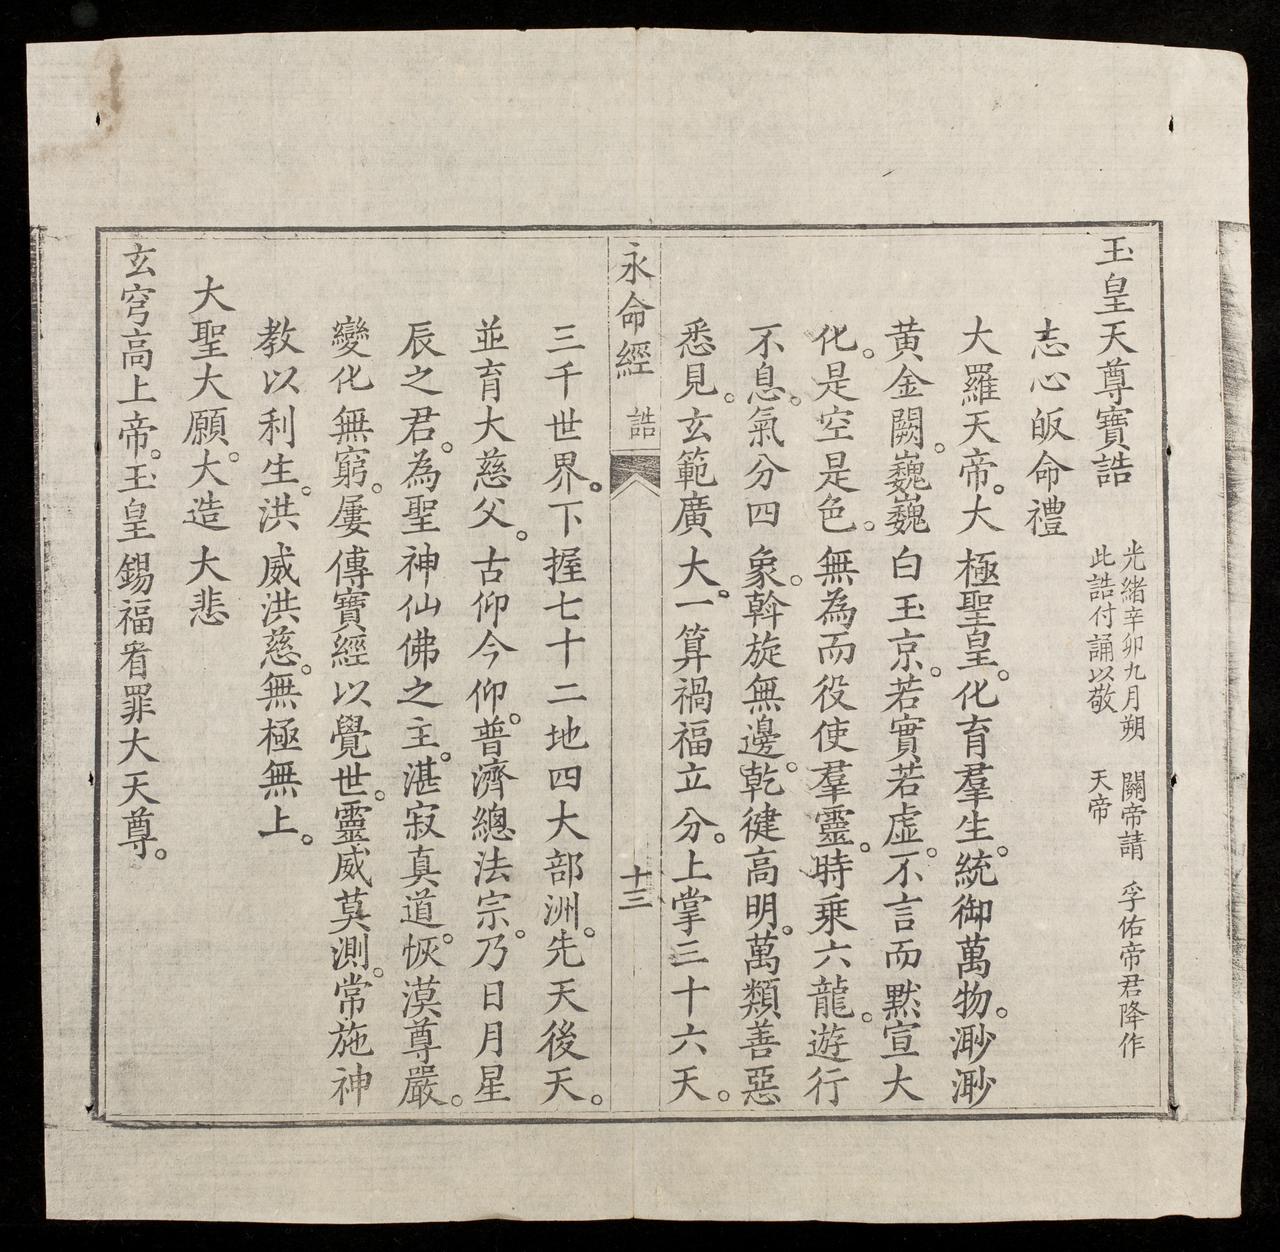 玉皇天尊寶誥
光緒辛卯九月朔 關帝請 孚佑帝君降作
此誥付誦以敬 天帝
志心皈命禮
大羅天帝。大極聖皇。化育羣生。統御萬物。渺渺
黃金闕。巍巍白玉京。若實若虛。不言而默宣大
化。是空是色。無為而役使羣靈。時乘六龍。遊行
不息。氣分四象。斡旋無邊。乾健高明。萬類善惡
悉見。玄範廣大。一算禍福立分。上掌三十六天。
永命經 誥 十三
三千世界。下握七十二地四大部洲。先天後天。
並育大慈父。古仰今仰。普濟總法宗。乃日月星
辰之君。為聖神仙佛之主。湛寂真道。恢漠尊嚴。
變化無窮。屢傳寶經以覺世。靈威莫測。常施神
教以利生。洪威洪慈。無極無上。
大聖大願。大造大悲
玄穹高上帝。玉皇錫福宥罪大天尊。